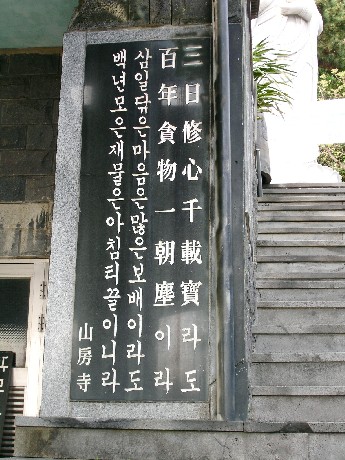 三日修心千載寶라도
百年貪物一朝塵이라
삼일닦은마음은많은보배이라도
백년모은재물은아침티끌이니라
山房寺